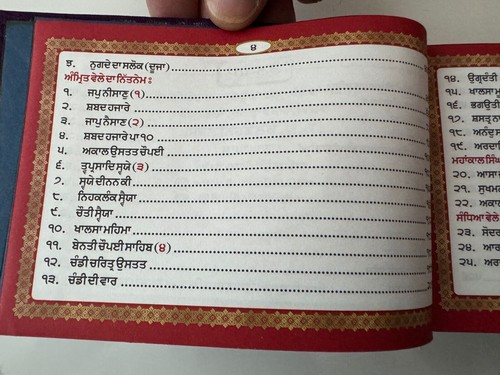 ੪
ੲ. ਨੁਗਦੇ ਦਾ ਸਲੋਕ (ਦੂਜਾ)
ਅੰਮ੍ਰਿਤ ਵੇਲੇ ਦਾ ਨਿੱਤਨੇਮ :
੧. ਜਪੁ ਨੀਸਾਣੁ (੧)
੨. ਸ਼ਬਦ ਹਜਾਰੇ
੩. ਜਾਪੁ ਨੈਸਾਣ (੨)
੪. ਸ਼ਬਦ ਹਜਾਰੇ ਪਾ ੧੦
੫. ਅਕਾਲ ਉਸਤਤ ਚੌਪਈ
੬. ਤ੍ਵਪ੍ਰਸਾਦਿ ਸ੍ਵਯੇ (੩)
੭. ਸ੍ਵਯੇ ਦੀਨਨ ਕੀ
੮. ਨਿਹਕਲੰਕ ਸ੍ਵੈਯਾ
੯. ਚੌਤੀ ਸ੍ਵੈਯਾ
੧੦. ਖਾਲਸਾ ਮਹਿਮਾ
੧੧. ਬੇਨਤੀ ਚੌਪਈ ਸਾਹਿਬ (੪)
੧੨. ਚੰਡੀ ਚਰਿਤ੍ਰ ਉਸਤਤ
੧੩. ਚੰਡੀ ਦੀ ਵਾਰ
੧੪. ਉਗ੍ਰਦੰਤੀ
੧੫. ਖਾਲਸਾ
੧੬. ਭਗਉਤੀ
੧੭. ਸ਼ਸਤ੍ਰ
੧੮. ਅਨੰਦੁ
੧੯.
ਮਹਾਂਕਾਲ
੨੦. ਆਸਾ
੨੧.
੨੨.
ਸੰਧਿਆ ਵੇਲੇ
੨੩.
੨੪.
੨੫.